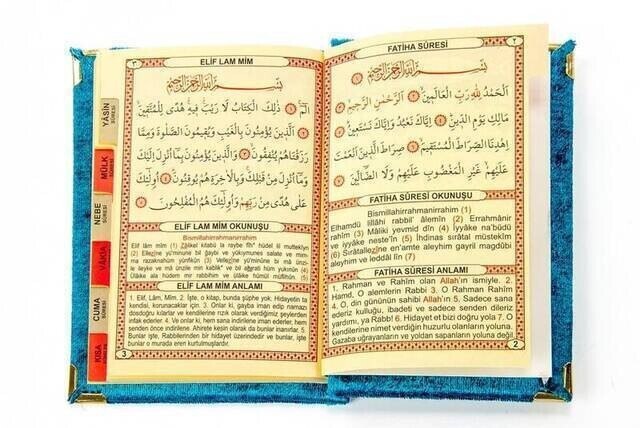 FATİHA SÛRESİ
٢
بِسْمِ اللّٰهِ الرَّحْمٰنِ الرَّحِيمِ
اَلْحَمْدُ لِلّٰهِ رَبِّ الْعَالَمِينَ اَلرَّحْمٰنِ الرَّحِيمِ
مَالِكِ يَوْمِ الدِّينِ اِيَّاكَ نَعْبُدُ وَاِيَّاكَ نَسْتَعِينُ
اِهْدِنَا الصِّرَاطَ الْمُسْتَقِيمَ صِرَاطَ الَّذِينَ اَنْعَمْتَ
عَلَيْهِمْ غَيْرِ الْمَغْضُوبِ عَلَيْهِمْ وَلَا الضَّالِّينَ
FATİHA SÛRESİ OKUNUŞU
Bismillahirrahmanirrahim (1)
Elhamdü lillâhi rabbil' âlemîn (2) Errahmânir
rahîm (3) Mâliki yevmid dîn (4) İyyâke na'büdü
ve iyyâke neste'în (5) İhdinas sırâtal müstekîm
(6) Sırâtallezîne en'amte aleyhim gayril magdûbi
aleyhim ve leddâl lîn (7)
FATİHA SÛRESİ ANLAMI
1. Rahman ve Rahîm olan Allah'ın ismiyle. 2.
Hamd, O alemlerin Rabbi 3. O Rahman Rahîm
4, O, din gününün sahibi Allah'ın 5, Sadece sana
ederiz kulluğu, ibadeti ve sadece senden dileriz
yardımı, ya Râbb! 6. Hidayet et bizi doğru yola 7. O
kendilerine nimet verdiğin huzurlu olanların yoluna.
Gazaba uğrayanların ve yoldan sapanların yoluna değil.
2
٣
ELİF LAM MİM
بِسْمِ اللّٰهِ الرَّحْمٰنِ الرَّحِيمِ
الٓمٓ ذٰلِكَ الْكِتَابُ لَا رَيْبَ فِيهِ هُدًى لِلْمُتَّقِينَ
اَلَّذِينَ يُؤْمِنُونَ بِالْغَيْبِ وَيُقِيمُونَ الصَّلٰوةَ وَمِمَّا
رَزَقْنَاهُمْ يُنْفِقُونَ وَالَّذِينَ يُؤْمِنُونَ بِمَا اُنْزِلَ اِلَيْكَ
وَمَا اُنْزِلَ مِنْ قَبْلِكَ وَبِالْاٰخِرَةِ هُمْ يُوقِنُونَ اُولٰئِكَ
عَلٰى هُدًى مِنْ رَبِّهِمْ وَاُولٰئِكَ هُمُ الْمُفْلِحُونَ
ELİF LAM MİM OKUNUŞU
Bismillahirrahmanirrahim
Elif lâm mîm (1) Zâlikel kitâbü la raybe fîh* hüdel lil mutteklyn
(2) Ellezîne yü'minune bil ğaybi ve yükıymunes salate ve mim-
ma razaknahüm yünfikûn (3) Vellezîne yü'minune bi mâ ünzi-
le ileyke ve mâ ünzile min kablik* ve bil ahırati hüm yukınûn (4)
Ülâike ala hüdem mir rabbihim ve ülâike hümül müflihûn (5)
ELİF LAM MİM ANLAMI
1. Elif, Lâm, Mîm. 2. İşte, o kitap, bunda şüphe yok; Hidayetin ta
kendisi, korunacaklar için. 3. Onlar ki, gayba iman edip namazı
dosdoğru kılarlar ve kendilerine rızık olarak verdiğimiz şeylerden
infak ederler. 4. Ve onlar ki, hem sana indirilene iman ederler, hem
senden önce indirilene. Ahirete kesin olarak da bunlar inanırlar. 5.
Bunlar işte, Rabbilerinden bir hidayet üzerindedir ve bunlar, işte
bunlar o murada eren kurtulmuşlardır.
3
YÂSİN
SÛRESİ
MÜLK
SÛRESİ
NEBE
SÛRESİ
VAKIA
CUMA
SÛRESİ
KISA